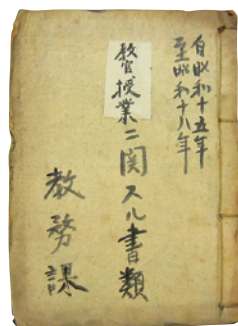 自昭和十五年
至昭和十八年
教官授業ニ関スル書類
教務課